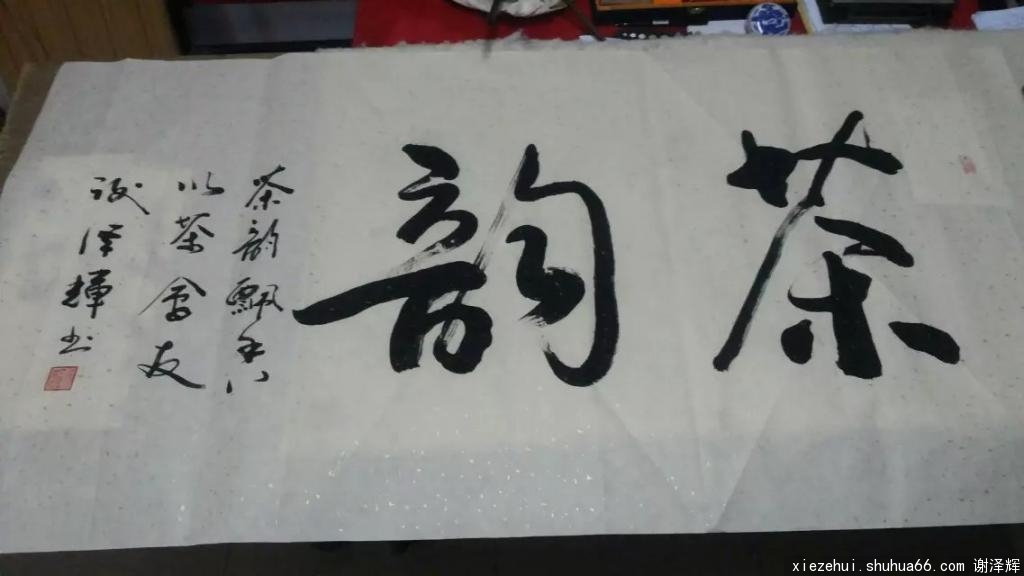 茶韵
茶韵飄香
以茶會友
谢泽輝书
xiezehui.shuhua66.com 谢泽辉